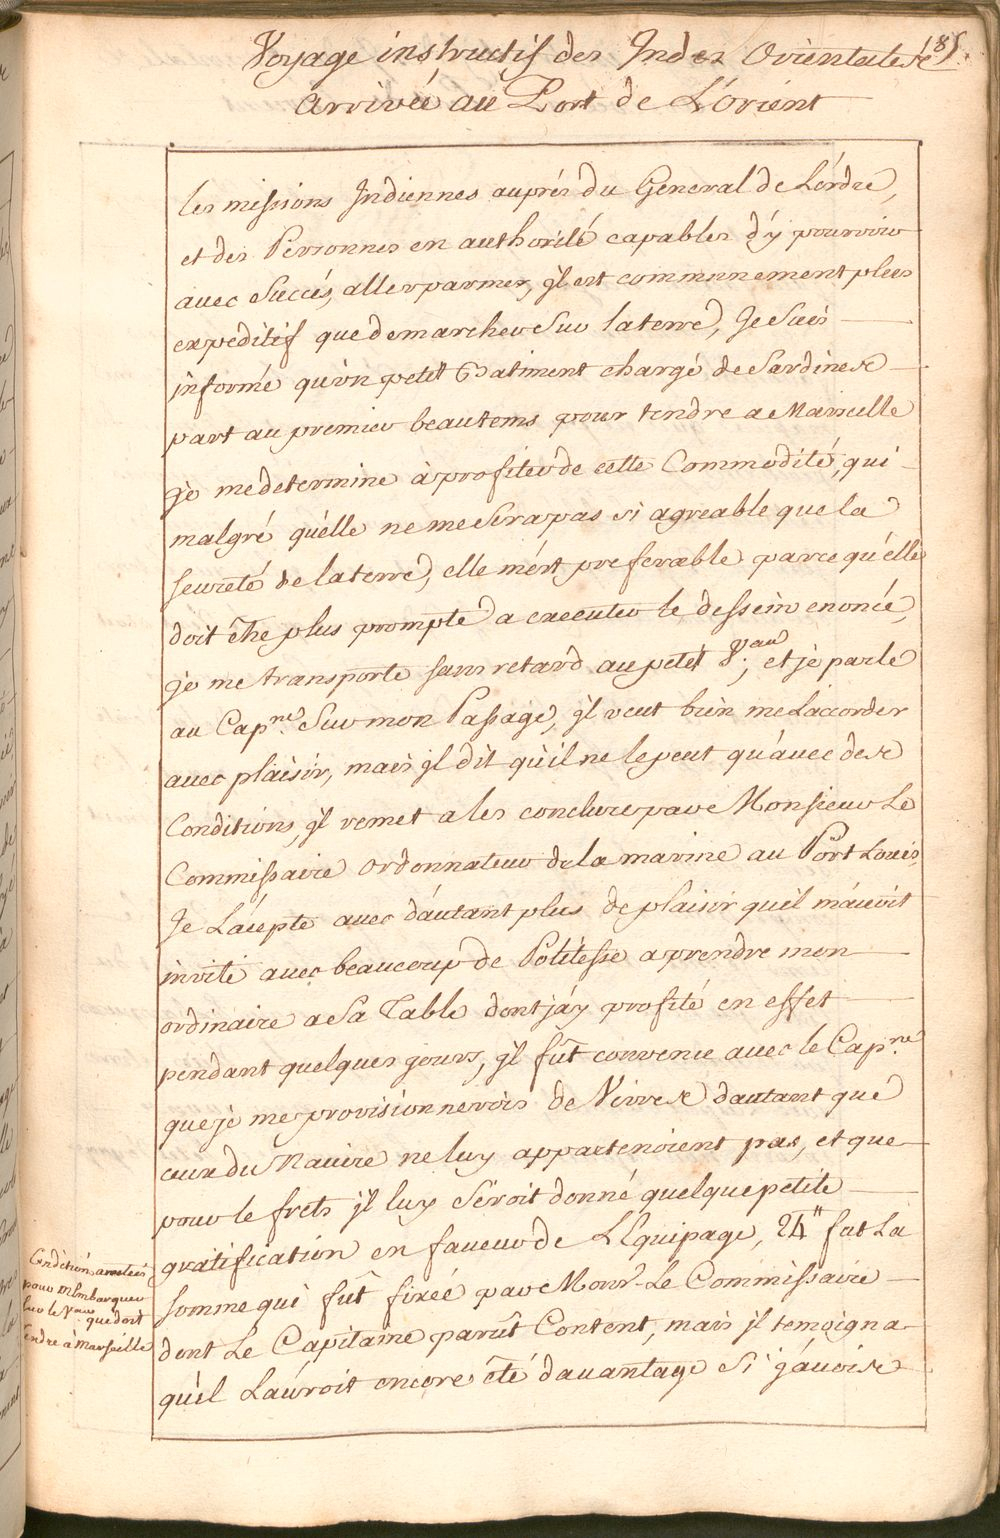 Voyage instructif des Indes Orientales 185.
Arrivée au Port de L'orient
les missions Indiennes auprés du General de L'órdre,
et des Personnes en authorité capables d'ý pourvoir
avec Succés, aller par mer, jl est communnement plus
expeditif que de marcher Sur la terre, Je Suis
informé qu'ún petit Batiment chargé de Sardines
part au premier beautems pour tendre a Marseille
je me determine à profiter de cette Commodité, qui
malgré qu'élle ne me Sera pas si agreable que la
seureté de la terre, elle m'ést preferable parce qu'elle
doit être plus prompte a executer le dessein enoncé,
je me transporte sans retard au petit V.au, et je parle
au Cap.ne Sur mon Passage, jl veut bien me L'accorder
avec plaisir, mais jl dit qu'il ne le peut qu'ávec des
Conditions, jl remet a les conclure par Monsieur Le
Commissaire Ordonnateur de la marine au Port Louis,
Je L'áccepte avec d'áutant plus de plaisir qu'il m'ávoit
invité avec beaucoup de Politesse a prendre mon
ordinaire a Sa Table dont j'áy profité en effet
pendant quelques jours, jl fût convenu avec le Cap.ne
que je me provisionnerois de Vivres d'autant que
ceux du Navire ne luy appartenoient pas, et que
pour le frets jl luy Seroit donné quelque petite
gratification en faveur de L'Equipage, 24₶ fut La
somme qui fût fixée par Monsr. Le Commissaire
dont Le Capitaine parût Content, mais jl temoigna
qu'il L'aúroit encore été davantage Si j'ávois
Condition arretées
pour m'Embarquer
sur le Vau que doit
tendre à Marseille